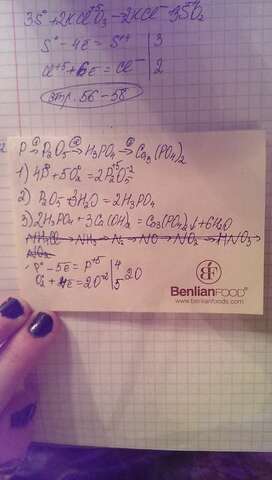 3S⁰ + 2KCl⁺⁵O₃ = 2KCl⁻ + 3SO₂
S⁰ - 4e = S⁺⁴ | 3
Cl⁺⁵ + 6e = Cl⁻ | 2
стр. 56-58
P → P₂O₅ → H₃PO₄ → Ca₃(PO₄)₂
1) 4P⁰ + 5O₂⁰ = 2P₂⁺⁵O₅⁻²
2) P₂O₅ + 3H₂O = 2H₃PO₄
3) 2H₃PO₄ + 3Ca(OH)₂ = Ca₃(PO₄)₂↓ + 6H₂O
→ NH₃ → N₂ → NO → NO₂ → HNO₃ →
P⁰ - 5e = P⁺⁵ | 4
O₂ + 4e = 2O⁻² | 5 20
BF
BenlianFOOD®
www.benlianfood.com